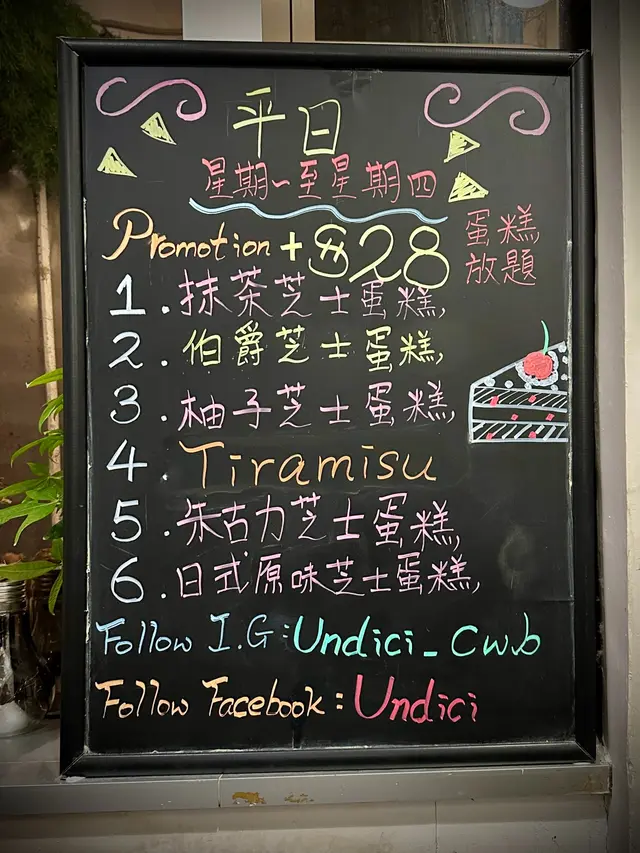 平日
星期一至星期四
Promotion + $28 蛋糕放題
1. 抹茶芝士蛋糕,
2. 伯爵芝士蛋糕,
3. 柚子芝士蛋糕,
4. Tiramisu
5. 朱古力芝士蛋糕,
6. 日式原味芝士蛋糕,
Follow I.G: Undici_cwb
Follow Facebook: Undici